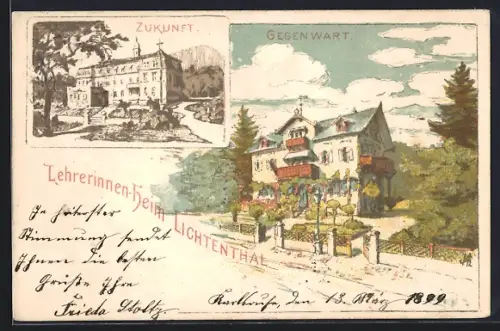 ZUKUNFT.
GEGENWART.
Lehrerinnen-Heim LICHTENTHAL
In heiterster
Stimmung sendet
Ihnen die besten
Grüße Ihre
Frieda Stoltz.
Karlsruhe, den 13. März 1899